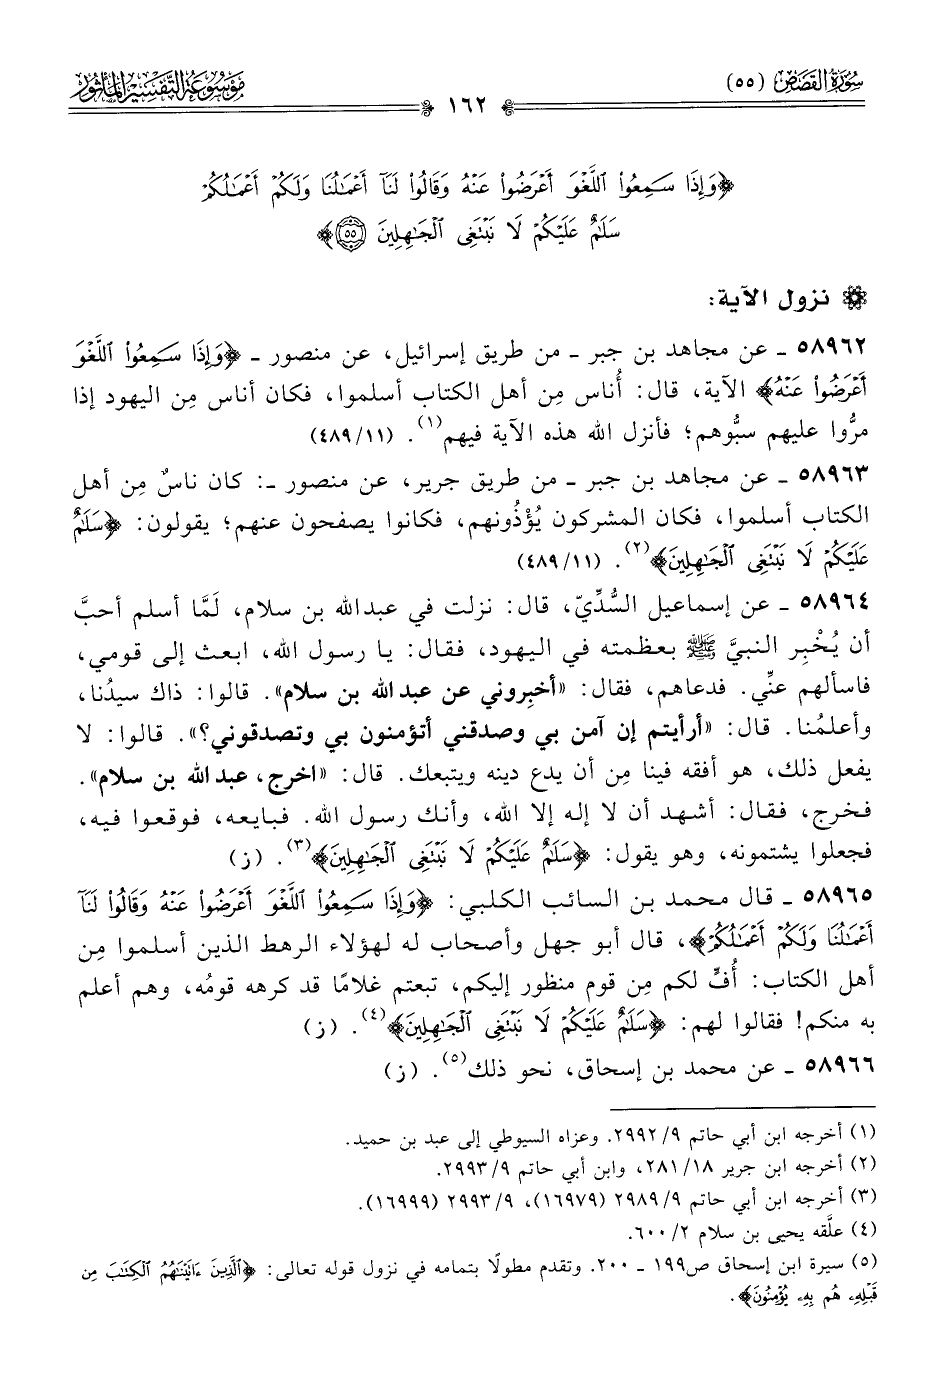 سُورَةُ القَصَصِ (٥٥)
١٦٢
مَوْسُوعَةُ التَّفْسِيرِ المَأْثُورِ
﴿وَإِذَا سَمِعُوا۟ ٱللَّغْوَ أَعْرَضُوا۟ عَنْهُ وَقَالُوا۟ لَنَآ أَعْمَـٰلُنَا وَلَكُمْ أَعْمَـٰلُكُمْ
سَلَـٰمٌ عَلَيْكُمْ لَا نَبْتَغِى ٱلْجَـٰهِلِينَ ٥٥﴾
نزول الآية:
٥٨٩٦٢ ـ عن مجاهد بن جبر ـ من طريق إسرائيل، عن منصور ـ ﴿وَإِذَا سَمِعُوا۟ ٱللَّغْوَ
أَعْرَضُوا۟ عَنْهُ﴾ الآية، قال: أُناس مِن أهل الكتاب أسلموا، فكان أناس مِن اليهود إذا
مرُّوا عليهم سبُّوهم؛ فأنزل الله هذه الآية فيهم(١). (٤٨٩/١١)
٥٨٩٦٣ ـ عن مجاهد بن جبر ـ من طريق جرير، عن منصور ـ: كان ناسٌ مِن أهل
الكتاب أسلموا، فكان المشركون يُؤْذُونهم، فكانوا يصفحون عنهم؛ يقولون: ﴿سَلَـٰمٌ
عَلَيْكُمْ لَا نَبْتَغِى ٱلْجَـٰهِلِينَ﴾(٢). (٤٨٩/١١)
٥٨٩٦٤ ـ عن إسماعيل السُّدِّيّ، قال: نزلت في عبدالله بن سلام، لَمَّا أسلم أحبَّ
أن يُخْبِر النبيَّ ﷺ بعظمته في اليهود، فقال: يا رسول الله، ابعث إلى قومي،
فاسألهم عنِّي. فدعاهم، فقال: «أخبِروني عن عبد الله بن سلام». قالوا: ذاك سيدُنا،
وأعلمُنا. قال: «أرأيتم إن آمن بي وصدقني أتؤمنون بي وتصدقوني؟». قالوا: لا
يفعل ذلك، هو أفقه فينا مِن أن يدع دينه ويتبعك. قال: «اخرج، عبد الله بن سلام».
فخرج، فقال: أشهد أن لا إله إلا الله، وأنك رسول الله. فبايعه، فوقعوا فيه،
فجعلوا يشتمونه، وهو يقول: ﴿سَلَـٰمٌ عَلَيْكُمْ لَا نَبْتَغِى ٱلْجَـٰهِلِينَ﴾(٣). (ز)
٥٨٩٦٥ ـ قال محمد بن السائب الكلبي: ﴿وَإِذَا سَمِعُوا۟ ٱللَّغْوَ أَعْرَضُوا۟ عَنْهُ وَقَالُوا۟ لَنَآ
أَعْمَـٰلُنَا وَلَكُمْ أَعْمَـٰلُكُمْ﴾، قال أبو جهل وأصحاب له لهؤلاء الرهط الذين أسلموا مِن
أهل الكتاب: أُفٍّ لكم مِن قوم منظور إليكم، تبعتم غلامًا قد كرهه قومُه، وهم أعلم
به منكم! فقالوا لهم: ﴿سَلَـٰمٌ عَلَيْكُمْ لَا نَبْتَغِى ٱلْجَـٰهِلِينَ﴾(٤). (ز)
٥٨٩٦٦ ـ عن محمد بن إسحاق، نحو ذلك(٥). (ز)
(١) أخرجه ابن أبي حاتم ٩/ ٢٩٩٢. وعزاه السيوطي إلى عبد بن حميد.
(٢) أخرجه ابن جرير ١٨/ ٢٨١، وابن أبي حاتم ٩/ ٢٩٩٣.
(٣) أخرجه ابن أبي حاتم ٩/ ٢٩٨٩ (١٦٩٧٩)، ٩/ ٢٩٩٣ (١٦٩٩٩).
(٤) علَّقه يحيى بن سلام ٢/ ٦٠٠.
(٥) سيرة ابن إسحاق ص١٩٩ ـ ٢٠٠. وتقدم مطولًا بتمامه في نزول قوله تعالى: ﴿ٱلَّذِينَ ءَاتَيْنَـٰهُمُ ٱلْكِتَـٰبَ مِن
قَبْلِهِۦ هُم بِهِۦ يُؤْمِنُونَ﴾.